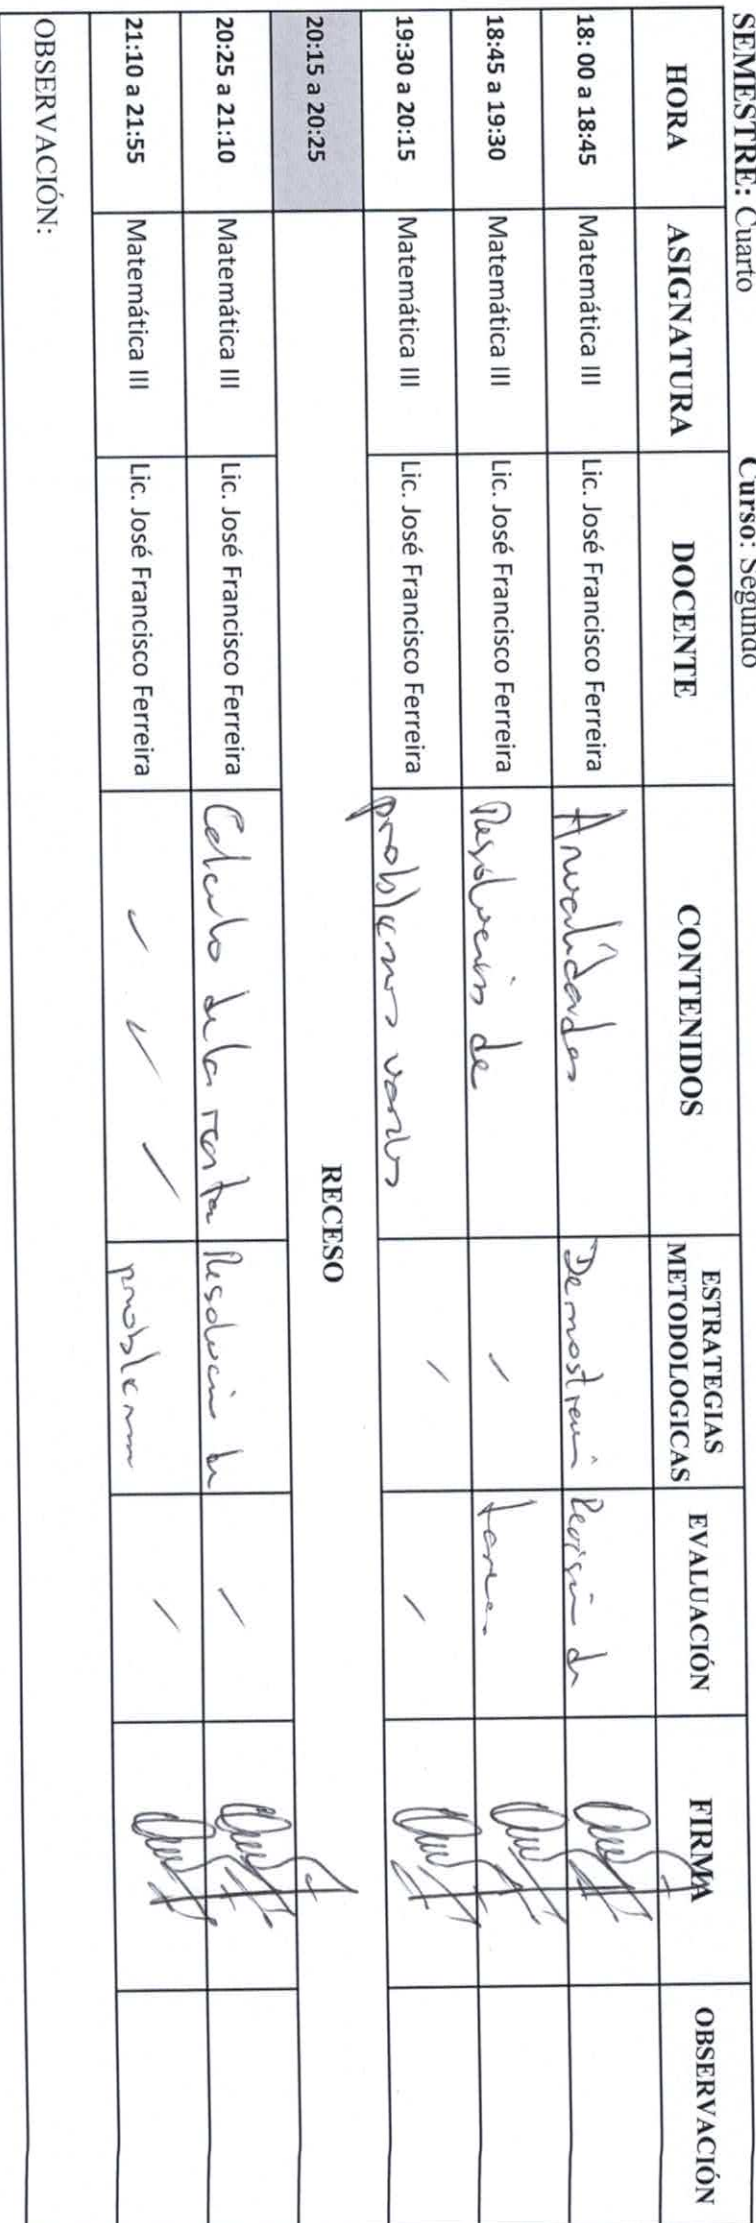 SEMESTRE: Cuarto Curso: Segundo
HORA ASIGNATURA DOCENTE CONTENIDOS ESTRATEGIAS METODOLOGICAS EVALUACIÓN FIRMA OBSERVACIÓN
18: 00 a 18:45 Matemática III Lic. José Francisco Ferreira Anualidades Demostración Revisión de
18:45 a 19:30 Matemática III Lic. José Francisco Ferreira Resolución de tarea
19:30 a 20:15 Matemática III Lic. José Francisco Ferreira problemas varios
20:15 a 20:25 RECESO
20:25 a 21:10 Matemática III Lic. José Francisco Ferreira Calculo de la renta Resolución de
21:10 a 21:55 Matemática III Lic. José Francisco Ferreira problemas
OBSERVACIÓN: